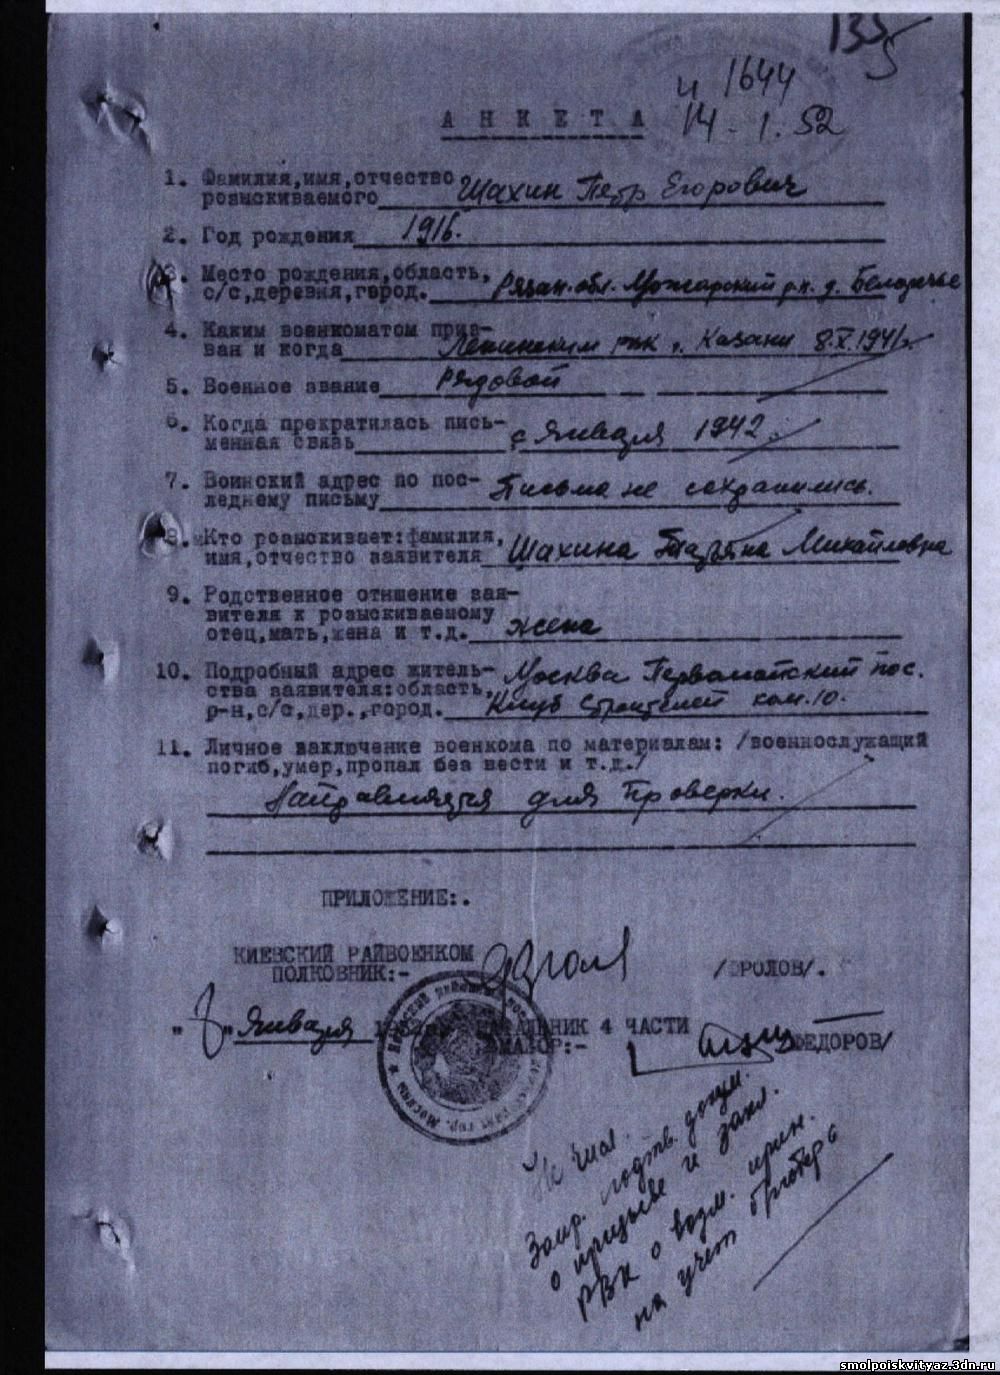 135
5
и 1644
14-1.52
АНКЕТА
1. Фамилия,имя,отчество
розыскиваемого Шахин Петр Егорович
2. Год рождения 1916.
3. Место рождения,область,
с/с,деревня,город. Рязан.обл. Можарский рн. д. Белоречье
4. Каким военкоматом приз-
ван и когда Ленинским рвк г. Казани 8.X.1941г.
5. Военное звание рядовой
6. Когда прекратилась пись-
менная связь с Января 1942.
7. Воинский адрес по пос-
леднему письму Письма не сохранились.
8. Кто розыскивает:фамилия,
имя,отчество заявителя Шахина Татьяна Михайловна
9. Родственное отншение зая-
вителя к розыскиваемому
отец,мать,жена и т.д. жена
10. Подробный адрес житель-
ства заявителя:область,
р-н,с/с,дер.,город. Москва Первомайский пос.
Клуб Строителей ком.10.
11. Личное заключение военкома по материалам: /военнослужащий
погиб,умер,пропал без вести и т.д./
Направляется для проверки.
ПРИЛОЖЕНИЕ:.
КИЕВСКИЙ РАЙВОЕНКОМ
ПОЛКОВНИК:- /ФРОЛОВ/.
"7" Января НАЧАЛЬНИК 4 ЧАСТИ
МАЙОР:- /ФЕДОРОВ/
Не числ.
Запр. подтв. докум.
о призыве и закл.
РВК о возм. прин.
на учет
smolpoiskvityaz.3dn.ru